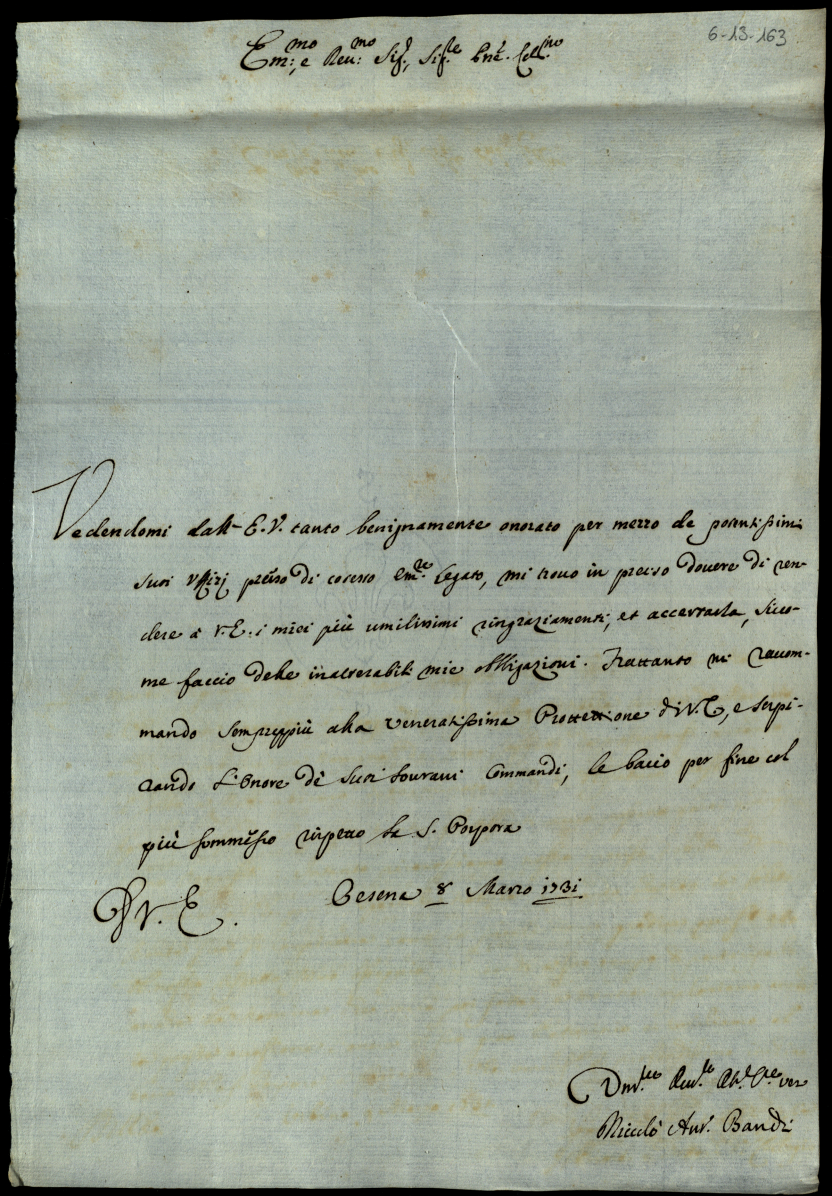 6-13-163
Em:mo, e Reu:mo Sig.r, Sig.re Pne. Col.mo
Vedendomi dall' E.V. tanto benignamente onorato per mezzo de potentissimi
suoi Uffizj presso di cotesto Em.re Legato, mi trovo in preciso dovere di ren-
dere à V.E. i miei più umilissimi ringraziamenti, et accertarla, sico-
me faccio delle inalterabili mie obbligazioni. Frattanto mi racom-
mando sempreppiù alla veneratissima Prottettione di V.E, e sospi-
rando L'Onore dè Suoi Sourani Commandi, le bacio per fine col
più sommesso rispetto la S. Porpora
Cesena 8 Marzo 1731
D V. E.
Niccolò Ant.o Bandi